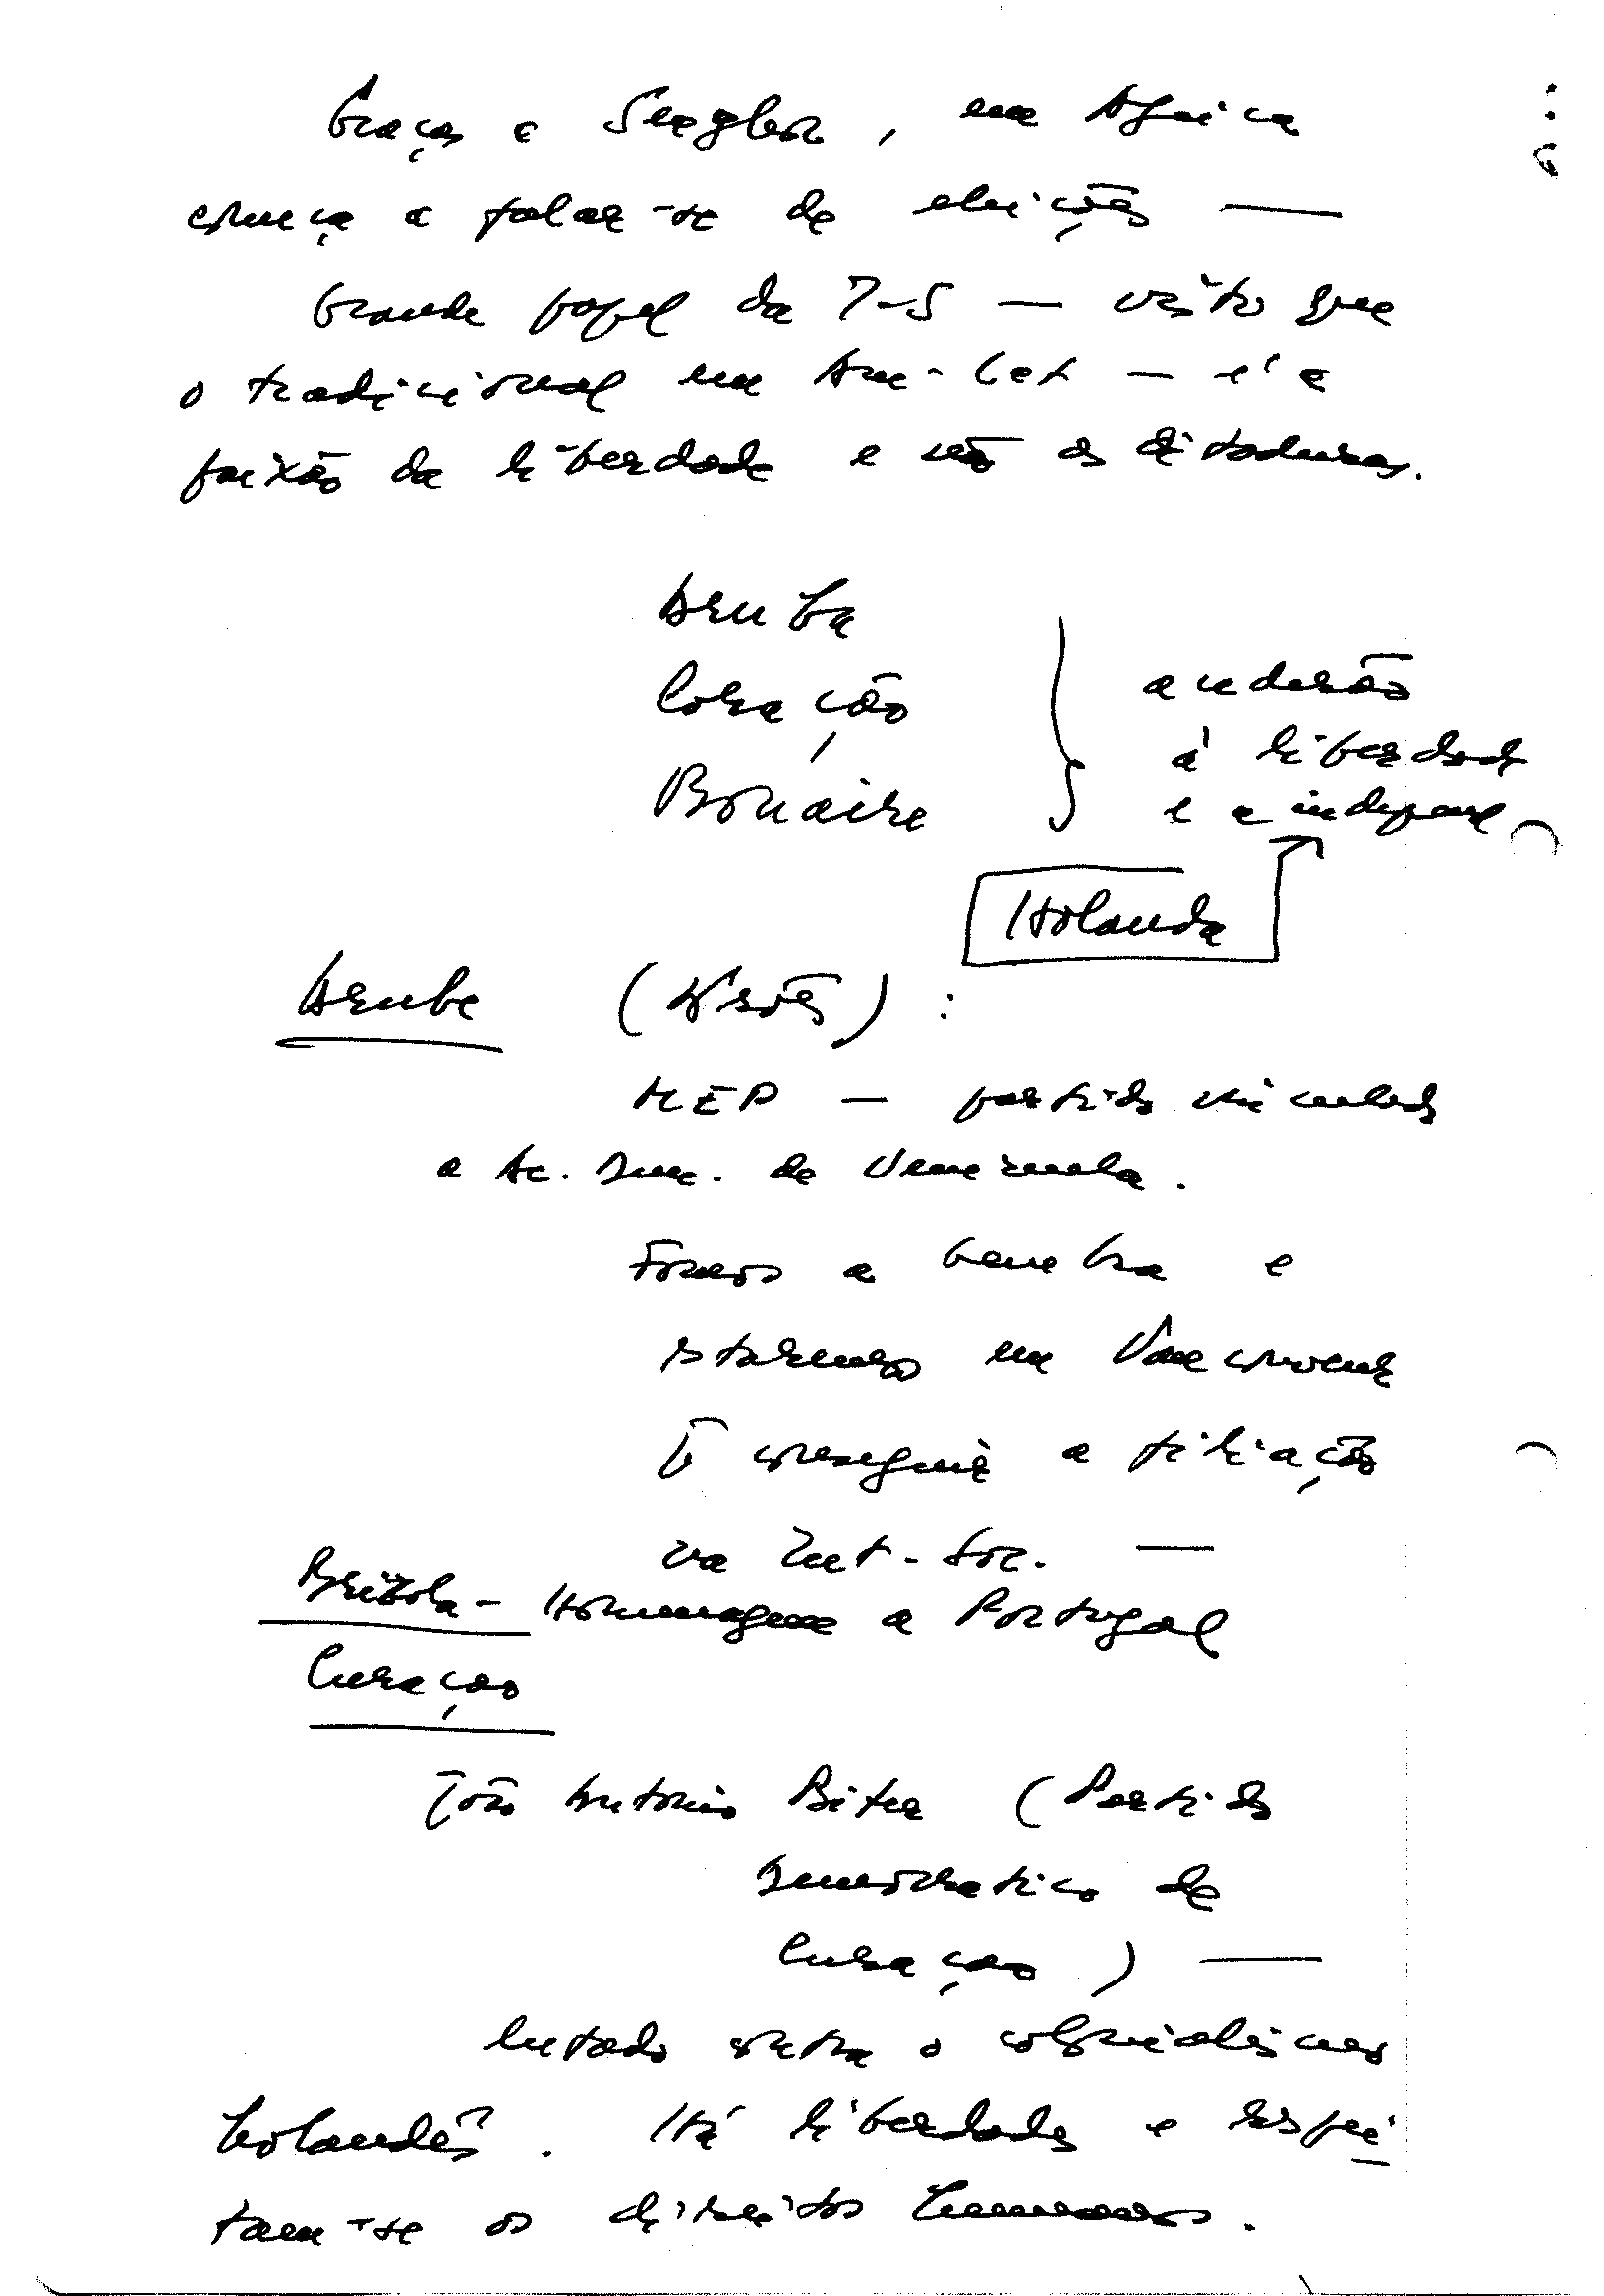 Graças a Senghor, em Africa
começa a falar-se de eleições —
Grande papel da I-S — visto que
o tradicional em Am-Lat — é a
paixão da liberdade e não as ditaduras.
Aruba
Coração
Bonaire
acedesão
à liberdade
e a indepen
Holanda
Aruba (Nações) :
MEP — partido vinculado
a Ac. Dem. de Venezuela.
Fomos a Genebra e
estaremos em Vancouver
P conseguir a filiação
na Int-Soc. —
Brizola - Homenagem a Portugal
Curaçao
João Antonio Biter (Partido
Democratico de
Curaçao) —
lutado contra o colonialismo
holandês. Há liberdades e respei
tam-se os direitos humanos.